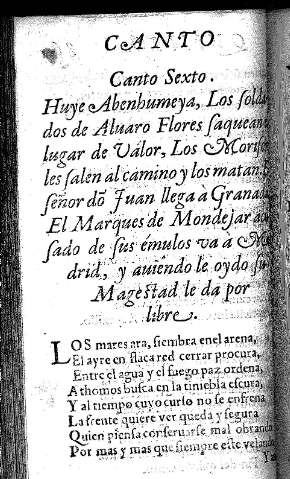 CANTO
Canto Sexto.
Huye Abenhumeya, Los solda
dos de Aluaro Flores saquean
lugar de Válor, Los Moris
les salen al camino y los matan.
señor dõ Juan llega à Granada
El Marques de Mondejar acu
sado de sus émulos va a Ma
drid, y auiendo le oydo su
Magestad le da por
libre.
LOS mares ara, siembra en el arena,
El ayre en flaca red cerrar procura,
Entre el agua y el fuego paz ordena,
Athomos busca en la tiniebla escura,
Y al tiempo cuyo curso no se enfrena
La frente quiere ver queda y segura
Quien piensa conseruarse mal obrando
Por mas y mas que siempre este velando